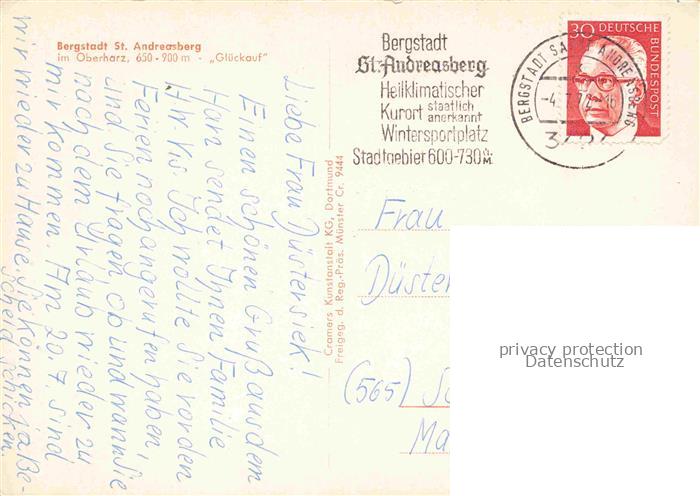 Bergstadt St. Andreasberg
im Oberharz, 650-900 m - „Glückauf"
Liebe Frau Düstersiek!
Einen schönen Gruß aus dem
Harz sendet Ihnen Familie
Ich wollte Sie vor den
Ferien noch angerufen haben,
und Sie fragen ob und wann Sie
nach dem Urlaub wieder zu
mir kommen. Am 20.7. sind
wir wieder zu Hause. Sie können ja Be-
scheid schicken.
Cramers Kunstanstalt KG, Dortmund
Freigeg. d. Reg.-Präs. Münster Cr. 9444
Bergstadt
St. Andreasberg
Heilklimatischer
Kurort staatlich anerkannt
Wintersportplatz
Stadtgebiet 600-730 m
BERGSTADT SANKT ANDREASBERG
30 DEUTSCHE BUNDESPOST
Frau
Düster
(565)
Ma
privacy protection
Datenschutz